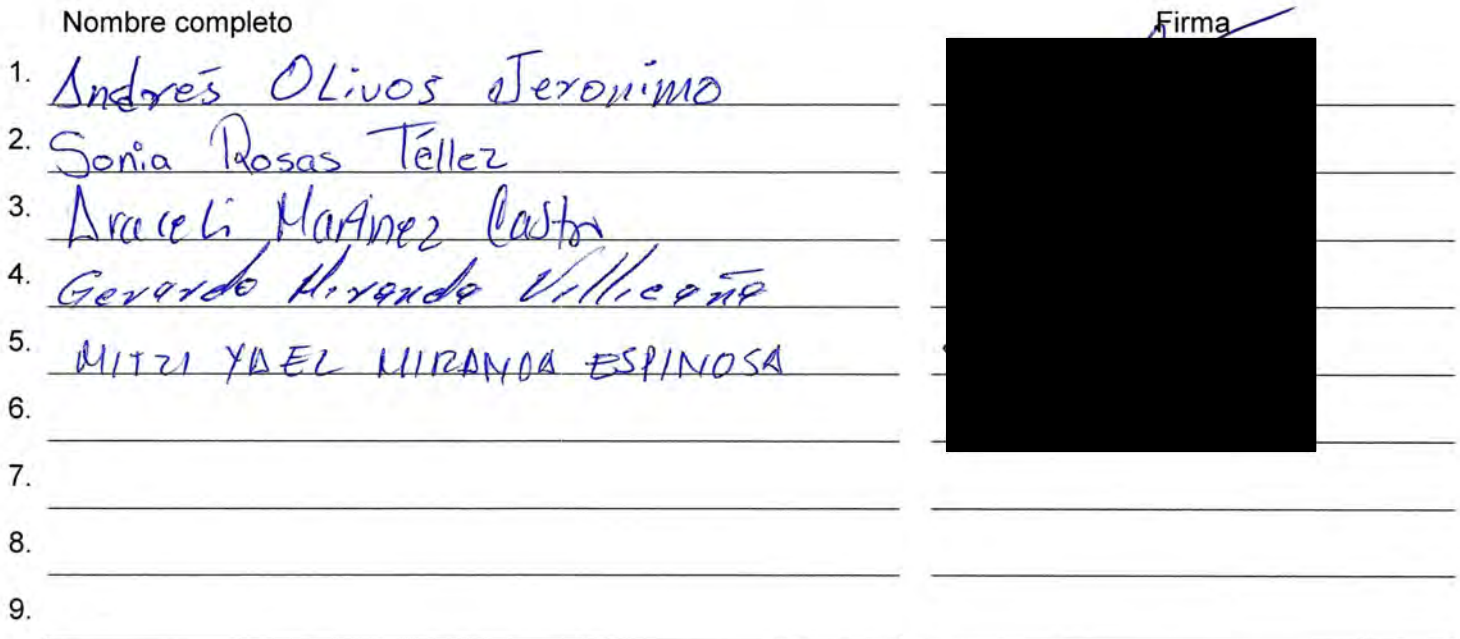 Nombre completo Firma
1. Andrés Olivos Jeronimo
2. Sonia Rosas Téllez
3. Araceli Martinez Castro
4. Gerardo Miranda Villicaña
5. MITZI YAEL MIRANDA ESPINOSA
6.
7.
8.
9.